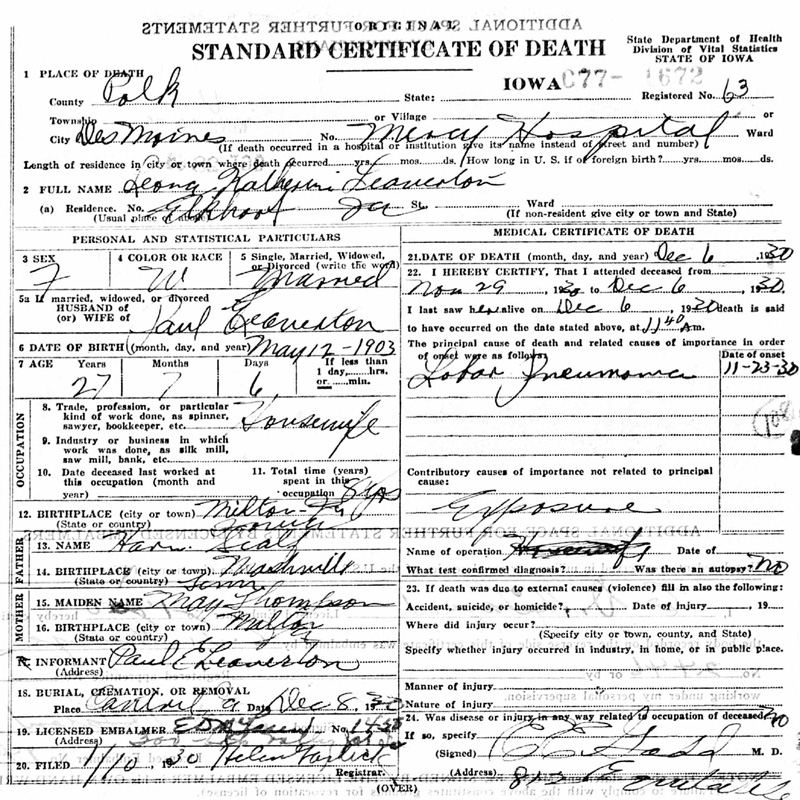 ADDITIONAL SPACE FOR FURTHER STATEMENTS
ORIGINAL
STANDARD CERTIFICATE OF DEATH
State Department of Health
Division of Vital Statistics
STATE OF IOWA
1 PLACE OF DEATH
IOWA 077- 1672
County Polk State: Registered No. 63
Township or Village or
City Des Moines No. Mercy Hospital Ward
(If death occurred in a hospital or institution give its name instead of street and number)
Length of residence in city or town where death occurred yrs. mos. ds. (How long in U. S. if of foreign birth? yrs. mos. ds.
2 FULL NAME Leona Katherine Leaverton
(a) Residence. No. Elkhart Ia St. Ward
(Usual place of abode) (If non-resident give city or town and State)
PERSONAL AND STATISTICAL PARTICULARS
3 SEX 4 COLOR OR RACE 5 Single, Married, Widowed, or Divorced (write the word)
F W Married
5a If married, widowed, or divorced
HUSBAND of
(or) WIFE of Paul Leaverton
6 DATE OF BIRTH (month, day, and year) May 12 - 1903
7 AGE Years Months Days If less than 1 day, hrs. or min.
27 7 6
OCCUPATION
8. Trade, profession, or particular
kind of work done, as spinner,
sawyer, bookkeeper, etc. Housewife
9. Industry or business in which
work was done, as silk mill,
saw mill, bank, etc.
10. Date deceased last worked at
this occupation (month and
year)
11. Total time (years)
spent in this
occupation 8 yrs
12. BIRTHPLACE (city or town) Milton
(State or country)
FATHER
13. NAME
14. BIRTHPLACE (city or town) Nashville
(State or country) Tenn
MOTHER
15. MAIDEN NAME May Thompson
16. BIRTHPLACE (city or town) Milton
(State or country)
17 INFORMANT Paul E Leaverton
(Address)
18. BURIAL, CREMATION, OR REMOVAL
Place Cantril Ia Date Dec 8, 1930
19. LICENSED EMBALMER No. 1458
(Address)
20. FILED 1/10, 1930 Helen Garlick
Registrar.
MEDICAL CERTIFICATE OF DEATH
21. DATE OF DEATH (month, day, and year) Dec 6 1930
22. I HEREBY CERTIFY, That I attended deceased from
Nov 29 1930 to Dec 6, 1930.
I last saw her alive on Dec 6, 1930 death is said
to have occurred on the date stated above, at 11 40 Am.
The principal cause of death and related causes of importance in order
of onset were as follows: Date of onset
Lobar Pneumonia 11-23-30
108
Contributory causes of importance not related to principal
cause:
Exposure
Name of operation Date of
What test confirmed diagnosis? Was there an autopsy? No
23. If death was due to external causes (violence) fill in also the following:
Accident, suicide, or homicide? Date of injury , 19
Where did injury occur?
(Specify city or town, county, and State)
Specify whether injury occurred in industry, in home, or in public place.
Manner of injury
Nature of injury
24. Was disease or injury in any way related to occupation of deceased No
If so, specify
(Signed) M. D.
(Address)
(OVER)